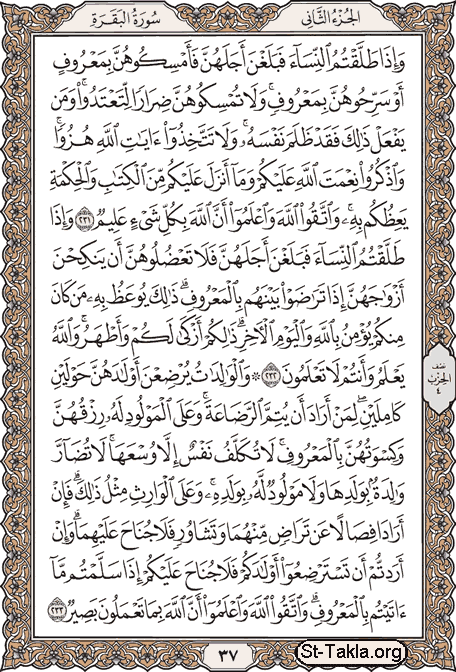 سُورَةُ البَقَرَةِ
الجُزْءُ الثَّانِي
وَإِذَا طَلَّقْتُمُ ٱلنِّسَآءَ فَبَلَغْنَ أَجَلَهُنَّ فَأَمْسِكُوهُنَّ بِمَعْرُوفٍ
أَوْ سَرِّحُوهُنَّ بِمَعْرُوفٍۚ وَلَا تُمْسِكُوهُنَّ ضِرَارًا لِّتَعْتَدُوا۟ۚ وَمَن
يَفْعَلْ ذَٰلِكَ فَقَدْ ظَلَمَ نَفْسَهُۥۚ وَلَا تَتَّخِذُوٓا۟ ءَايَٰتِ ٱللَّهِ هُزُوًاۚ
وَٱذْكُرُوا۟ نِعْمَتَ ٱللَّهِ عَلَيْكُمْ وَمَآ أَنزَلَ عَلَيْكُم مِّنَ ٱلْكِتَٰبِ وَٱلْحِكْمَةِ
يَعِظُكُم بِهِۦۚ وَٱتَّقُوا۟ ٱللَّهَ وَٱعْلَمُوٓا۟ أَنَّ ٱللَّهَ بِكُلِّ شَىْءٍ عَلِيمٌ ٢٣١ وَإِذَا
طَلَّقْتُمُ ٱلنِّسَآءَ فَبَلَغْنَ أَجَلَهُنَّ فَلَا تَعْضُلُوهُنَّ أَن يَنكِحْنَ
أَزْوَٰجَهُنَّ إِذَا تَرَٰضَوْا۟ بَيْنَهُم بِٱلْمَعْرُوفِۗ ذَٰلِكَ يُوعَظُ بِهِۦ مَن كَانَ
مِنكُمْ يُؤْمِنُ بِٱللَّهِ وَٱلْيَوْمِ ٱلْءَاخِرِۗ ذَٰلِكُمْ أَزْكَىٰ لَكُمْ وَأَطْهَرُۚ وَٱللَّهُ
يَعْلَمُ وَأَنتُمْ لَا تَعْلَمُونَ ٢٣٢ ۞ وَٱلْوَٰلِدَٰتُ يُرْضِعْنَ أَوْلَٰدَهُنَّ حَوْلَيْنِ
كَامِلَيْنِۖ لِمَنْ أَرَادَ أَن يُتِمَّ ٱلرَّضَاعَةَۚ وَعَلَى ٱلْمَوْلُودِ لَهُۥ رِزْقُهُنَّ
وَكِسْوَتُهُنَّ بِٱلْمَعْرُوفِۚ لَا تُكَلَّفُ نَفْسٌ إِلَّا وُسْعَهَاۚ لَا تُضَآرَّ
وَٰلِدَةٌۢ بِوَلَدِهَا وَلَا مَوْلُودٌ لَّهُۥ بِوَلَدِهِۦۚ وَعَلَى ٱلْوَارِثِ مِثْلُ ذَٰلِكَۗ فَإِنْ
أَرَادَا فِصَالًا عَن تَرَاضٍ مِّنْهُمَا وَتَشَاوُرٍ فَلَا جُنَاحَ عَلَيْهِمَاۗ وَإِنْ
أَرَدتُّمْ أَن تَسْتَرْضِعُوٓا۟ أَوْلَٰدَكُمْ فَلَا جُنَاحَ عَلَيْكُمْ إِذَا سَلَّمْتُم مَّآ
ءَاتَيْتُم بِٱلْمَعْرُوفِۗ وَٱتَّقُوا۟ ٱللَّهَ وَٱعْلَمُوٓا۟ أَنَّ ٱللَّهَ بِمَا تَعْمَلُونَ بَصِيرٌ ٢٣٣
نصف
الحزب
٤
٣٧
St-Takla.org